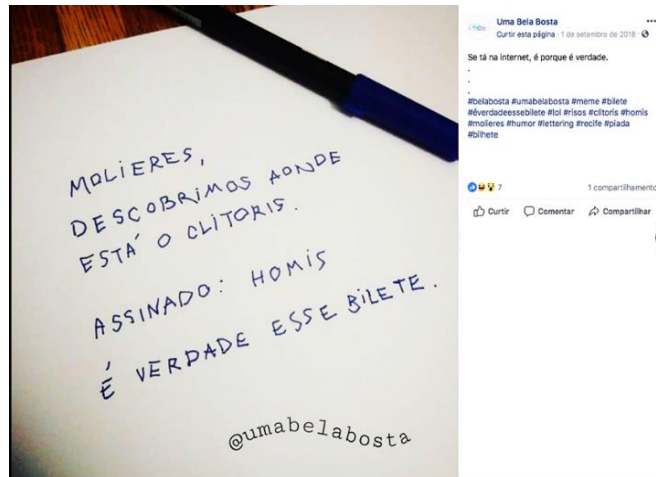 MOLIERES,
DESCOBRIMOS AONDE
ESTÁ O CLITORIS.
ASSINADO: HOMIS
É VERDADE ESSE BILETE.
@umabelabosta
Uma Bela Bosta
Curtir esta página · 1 de setembro de 2018 ·
Se tá na internet, é porque é verdade.
.
.
.
#belabosta #umabelabosta #meme #bilete
#éverdadeessebilete #lol #risos #clitoris #homis
#molieres #humor #lettering #recife #piada
#bilhete
7
1 compartilhamento
Curtir Comentar Compartilhar